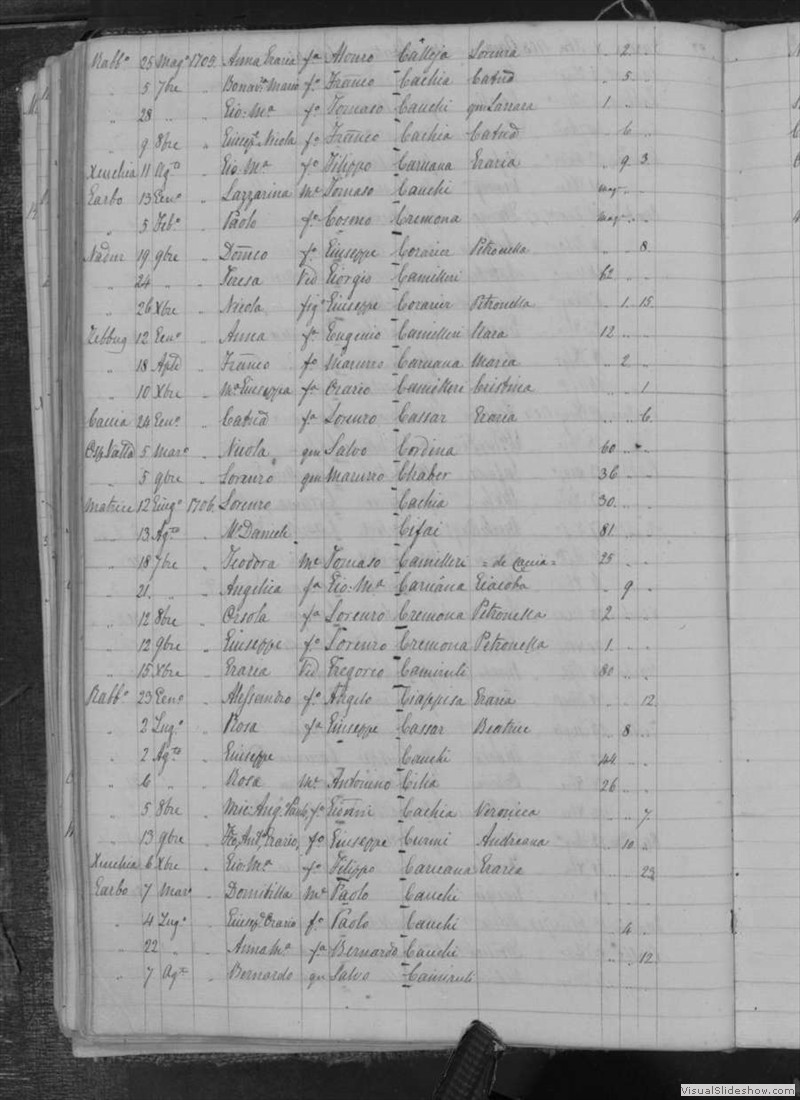 Rabbo 25 Mago 1705. Anna Grazia fa Alonzo Calleja Lorenza 2
" 5 7bre " Bonava Mario fo Franco Cachia Catnd 5
" 28 " " Gio: Ma fo Tomaso Cauchi qm Lazzara 1
" 9 8bre " Giusepe Nicola fo Franco Cachia Catnd 6
Xeuchia 11 Agto " Gio Ma fo Filippo Caruana Grazia 9 3
Garbo 13 Geno " Lazzarina Me Tomaso Cauchi mag
" 5 Febo " Paolo fo Cosmo Cremona mag
Nadur 19 9bre " Domco fo Giuseppe Cozaier Petronella 8
" 24 " Teresa Vid Giorgio Camilleri 62
" 26 Xbre " Nicola figo Giuseppe Cozaier Petronella 1 15
Zebbug 12 Geno " Anna fa Eugenio Camilleri Clara 12
" 18 Aple " Franco fo Maruzzo Caruana Maria 2
" 10 Xbre " Ma Giuseppa fa Orazio Camilleri Cristina 1
Caccia 24 Geno " Catnd fa Lorenzo Cassar Grazia 6
" 5 Maro " Nicola qm Salvo Cordina 60
" 5 9bre " Lorenzo qm Maruzzo Chaber 36
Matrice 12 Giugo 1706. Lorenzo Cachia 30
" 13 Agto " Mo Daniele Cifai 81
" 18 7bre " Teodora Me Tomaso Camilleri = de Caccia = 25
" 21 " " Angelica fa Gio: Ma Caruana Giacoba 9
" 12 8bre " Orsola fa Lorenzo Cremona Petronella 2
" 12 9bre " Giuseppe fo Lorenzo Cremona Petronella 1
" 15 Xbre " Grazia Vid Gregorio Camenuli 80
Rabbo 23 Geno " Alessandro fo Angelo Ciappisa Grazia 12
" 2 Lugo " Rosa fa Giuseppe Cassar Beatrice 8
" 2 Agto " Giuseppe Cauchi 44
" 6 " " Rosa Me Antonino Cilia 26
" 5 8bre " Mic: Ang: Paolo fo Gionni Cachia Veronica 7
" 13 9bre " Anto Grazio fo Giuseppe Curmi Andreana 10
Xeuchia 6 Xbre " Gio: Ma fo Filippo Caruana Grazia 23
Garbo 7 Maro " Domitilla Me Paolo Cauchi
" 4 Lugo " Giusepe Orazio fo Paolo Cauchi 4
" 22 " Anna Ma fa Bernardo Cauchi 12
" 7 Agto " Bernardo qm Salvo Camenuli
VisualSlideshow.com